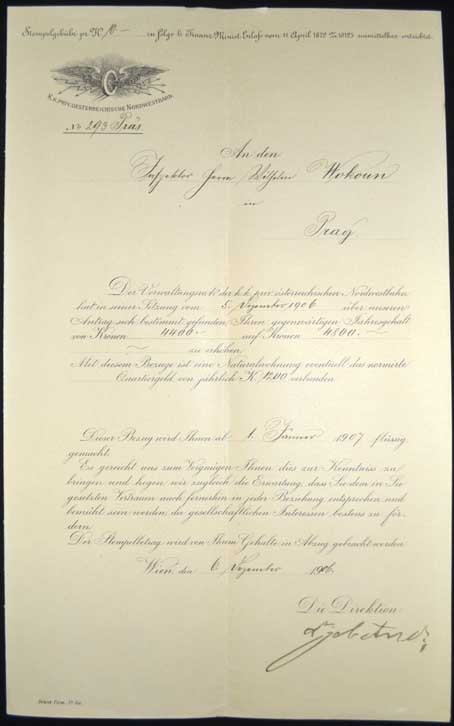 Stempelgebühr pr. K in folge k. Finanz Minist. Erlass vom 11 April 1872 unmittelbar entrichtet.
K.K. PRIV. OESTERREICHISCHE NORDWESTBAHN
No 293 Präs.
An den
Inspektor Herrn Wilhelm Wokoun
in
Prag.
Der Verwaltungsrath der k.k. priv. österreichischen Nordwestbahn
hat in seiner Sitzung vom 5. Dezember 1906 über unseren
Antrag sich bestimmt gefunden, Ihren gegenwärtigen Jahresgehalt
von Kronen 4400.- auf Kronen 4800.-
zu erhöhen.
Mit diesem Bezuge ist eine Naturalwohnung eventuell das normirte
Quartiergeld von jährlich K 1200 verbunden.
Dieser Bezug wird Ihnen ab 1. Jänner 1907 flüssig
gemacht.
Es gereicht uns zum Vergnügen Ihnen dies zur Kenntniss zu
bringen und hegen wir zugleich die Erwartung, dass Sie dem in Sie
gesetzten Vertrauen auch fernerhin in jeder Beziehung entsprechen und
bemüht sein werden, die gesellschaftlichen Interessen bestens zu för-
dern.
Der Stempelbetrag wird von Ihrem Gehalte in Abzug gebracht werden.
Wien, den 6. Dezember 1906.
Die Direktion